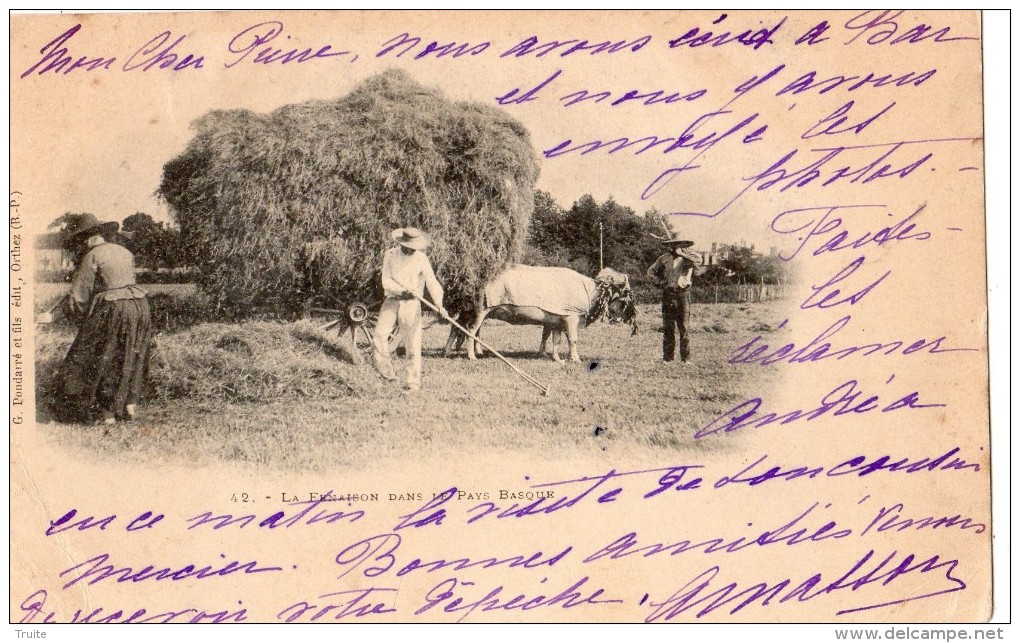 Mon Cher Pierre, nous avons écrit a Bar
et nous y avons
envoyé les
photos. -
Faides-
les
réclamer
Andréa
G. Pondarré et fils édit., Orthez (B.-P.)
42. - LA FENAISON DANS LE PAYS BASQUE
en ce matin la visite de son cousin
Mercier. Bonnes amitiés Venons
de recevoir votre dépêche,
Truite
www.delcampe.net